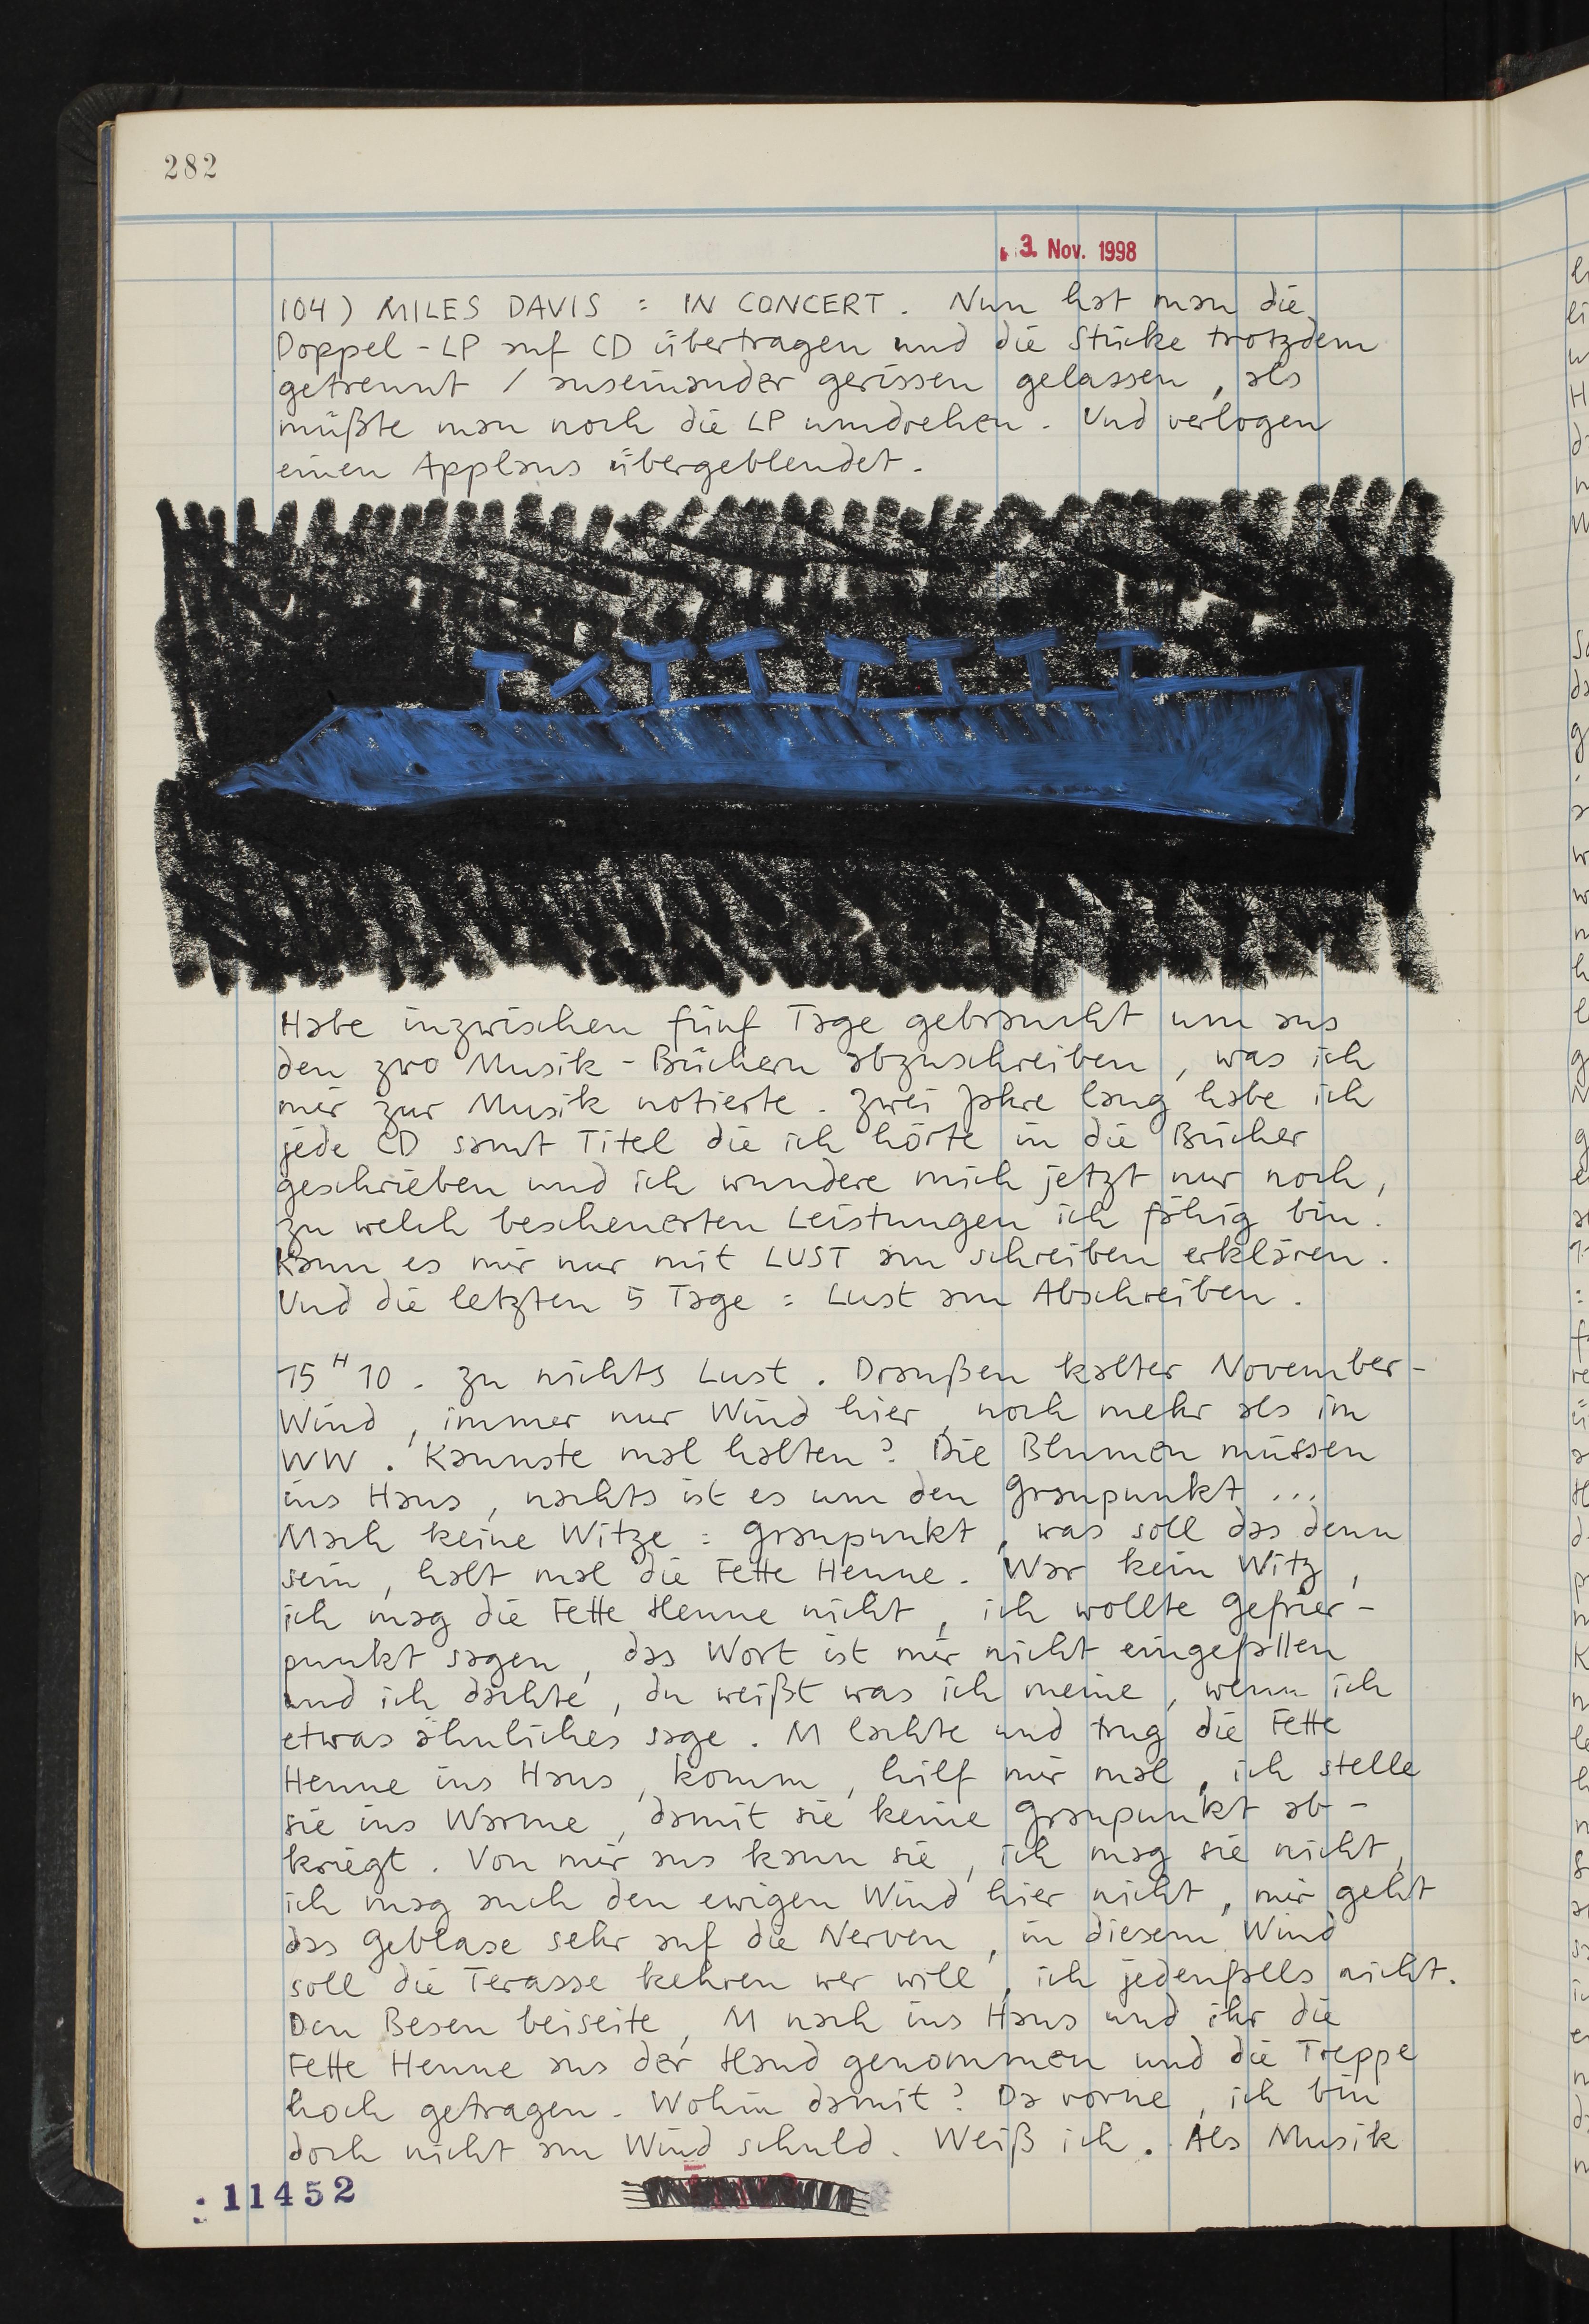 282
3. Nov. 1998
104) MILES DAVIS : IN CONCERT. Nun hat man die
Doppel-LP auf CD übertragen und die Stücke trotzdem
getrennt / auseinander gerissen gelassen, als
müßte man noch die LP umdrehen. Und verlogen
einen Applaus übergeblendet.
Habe inzwischen fünf Tage gebraucht um aus
den zwo Musik-Büchern abzuschreiben, was ich
mir zur Musik notierte. Zwei Jahre lang habe ich
jede CD samt Titel die ich hörte in die Bücher
geschrieben und ich wundere mich jetzt nur noch,
zu welch bescheuerten Leistungen ich fähig bin.
Kann es mir nur mit LUST am schreiben erklären.
Und die letzten 5 Tage : Lust am Abschreiben.
15 H 10. Zu nichts Lust. Draußen kalter November-
Wind, immer nur Wind hier, noch mehr als im
WW. Kannste mal halten? Die Blumen müssen
ins Haus, nachts ist es um den Graupunkt ...
Mach keine Witze : Graupunkt, was soll das denn
sein, halt mal die Fette Henne. War kein Witz,
ich mag die Fette Henne nicht, ich wollte Gefrier-
punkt sagen, das Wort ist mir nicht eingefallen
und ich dachte, du weißt was ich meine, wenn ich
etwas ähnliches sage. M lachte und trug die Fette
Henne ins Haus, komm, hilf mir mal, ich stelle
sie ins Warme, damit sie keine Graupunkt ab-
kriegt. Von mir aus kann sie, ich mag sie nicht,
ich mag auch den ewigen Wind hier nicht, mir geht
das Geblase sehr auf die Nerven, in diesem Wind
soll die Terasse kehren wer will, ich jedenfalls nicht.
Den Besen beiseite, M nach ins Haus und ihr die
Fette Henne aus der Hand genommen und die Treppe
hoch getragen. Wohin damit? Da vorne, ich bin
doch nicht am Wind schuld. Weiß ich. Als Musik
11452